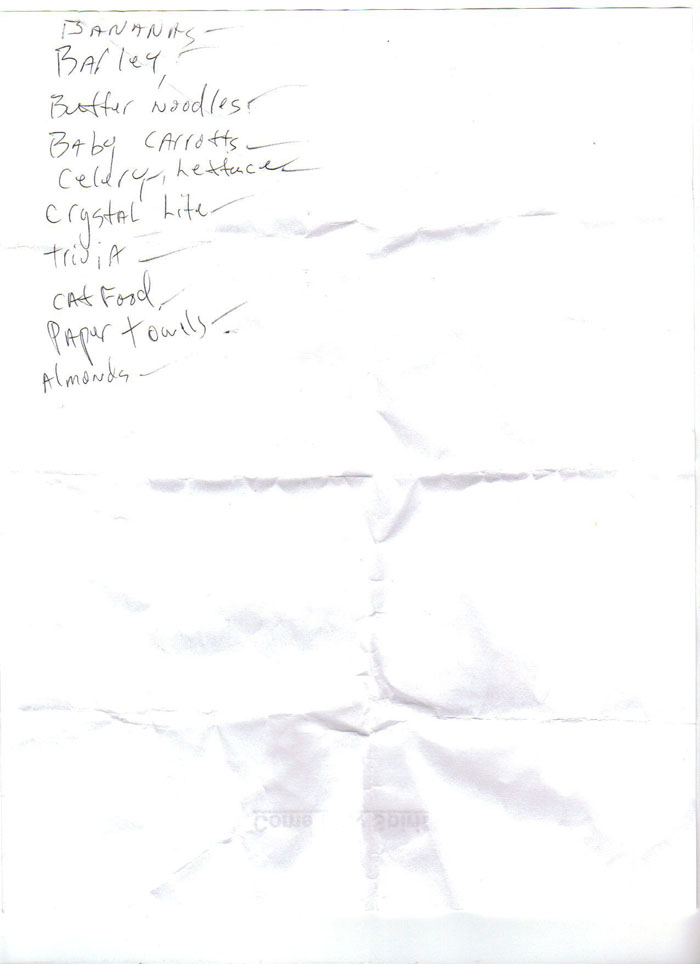 BANANAS
BArley
Butter Noodles
BAby CArrotts
Celery, Lettuce
CrystAL Lite
triviA
CAt Food
PAper towels
Almonds
Come Spirit